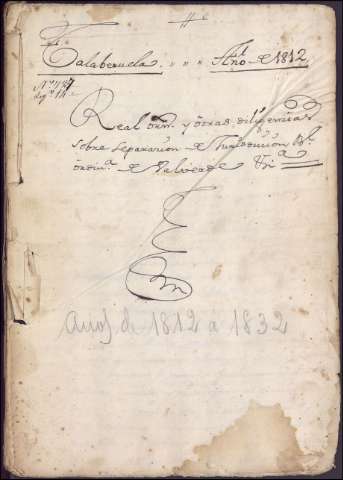 Talaberuela Año de 1812
Real orn. y otras diligencias
sobre separacion de Jurisdiccion
ordin.ª de Valverde
Años de 1812 a 1832